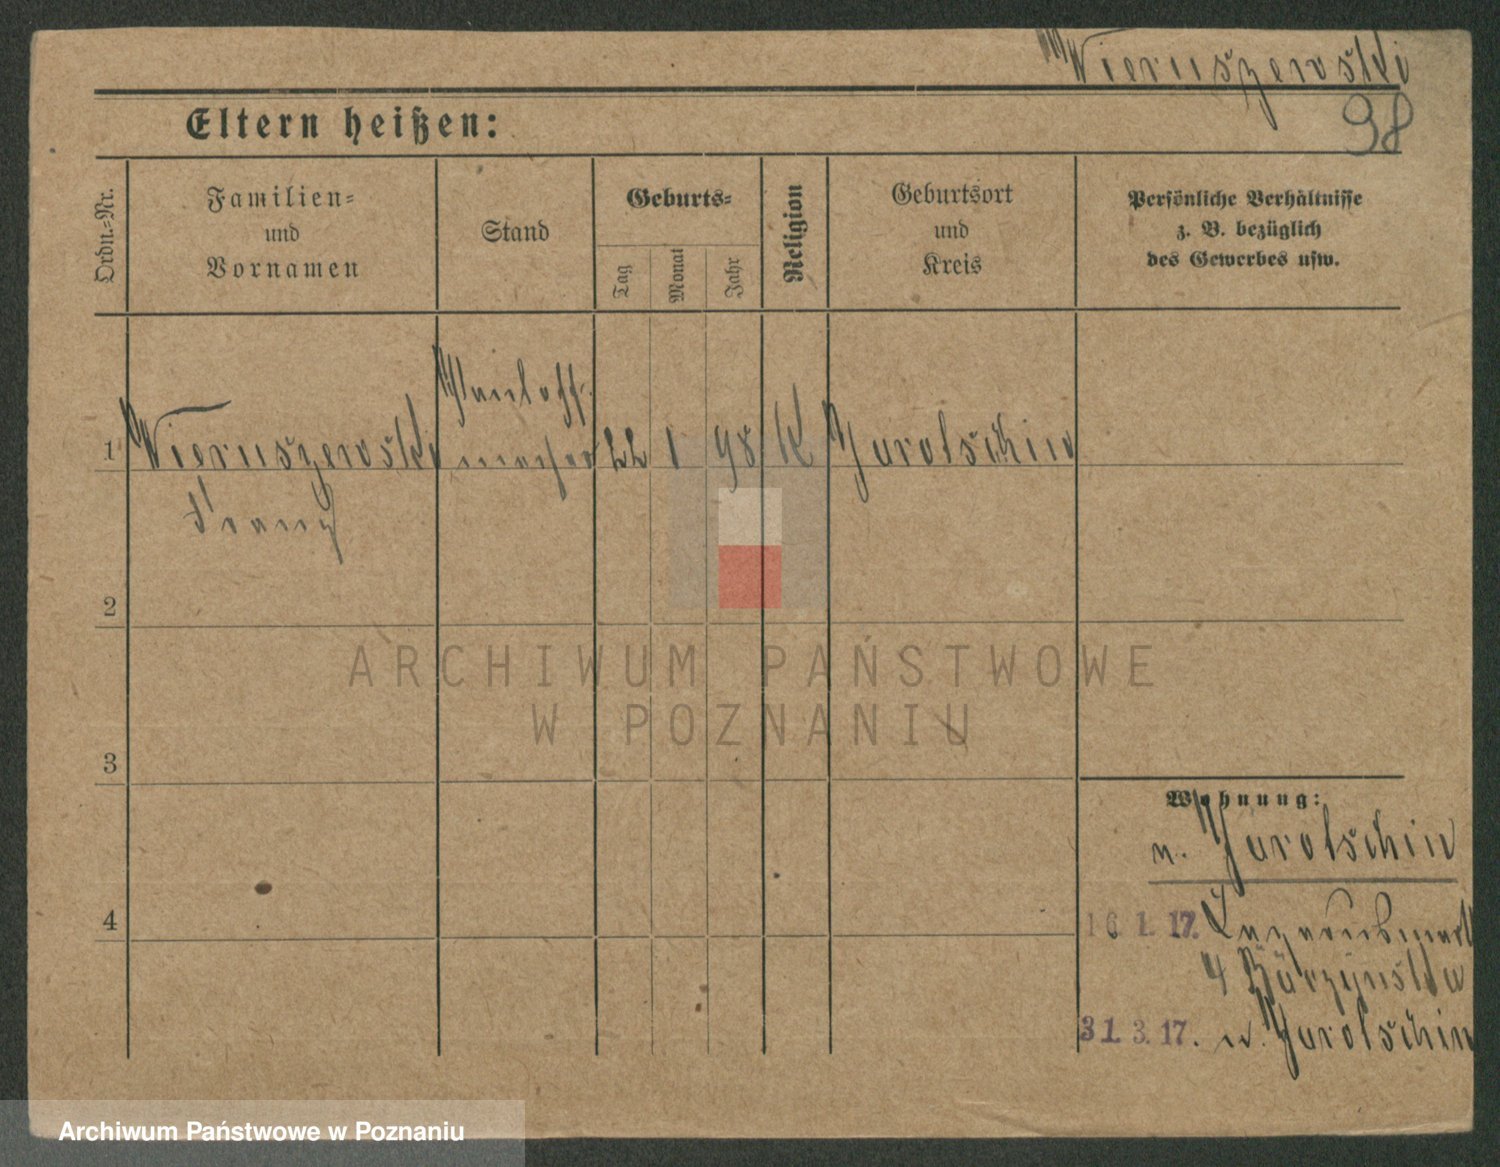 Wieruszewski
98
Eltern heißen:
Ordn.-Nr.
Familien-
und
Vornamen
Stand
Geburts-
Tag
Monat
Jahr
Religion
Geburtsort
und
Kreis
Persönliche Verhältnisse
z. B. bezüglich
des Gewerbes usw.
1 Wieruszewski 22 1 98 K Jarotschin
Franz
2
3
4
Wohnung:
n. Jarotschin
16. 1. 17.
4
31. 3. 17. n. Jarotschin
ARCHIWUM PAŃSTWOWE
W POZNANIU
Archiwum Państwowe w Poznaniu